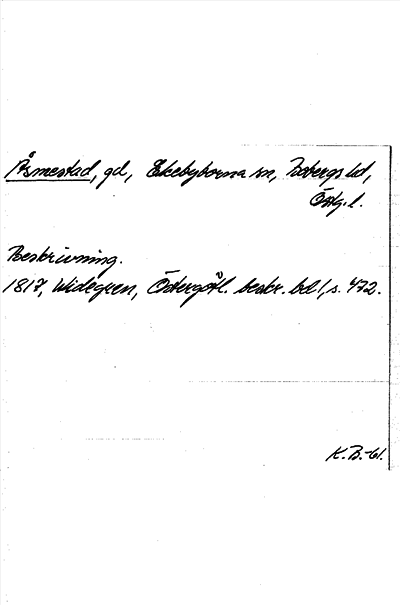 Åsmestad, gd, Ekebyborna sn, Bobergs hd,
Östg. l.
Beskrivning.
1817, Widegren, Östergötl. beskr. bd 1, s. 472.
K.B.-61.